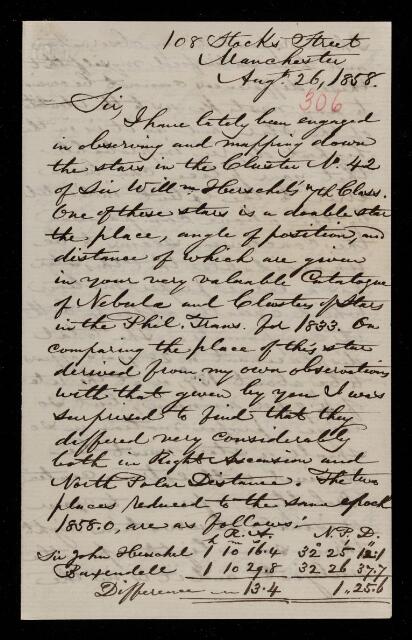 108 Stocks Street
Manchester
Augt. 26, 1858.
306
Sir,
I have lately been engaged
in observing and mapping down
the stars in the Cluster No. 42
of Sir Willm Herschel's 7th Class.
One of those stars is a double star
the place, angle of position, and
distance of which are given
in your very valuable Catalogue
of Nebula and Clusters of Stars
in the Phil. Trans. for 1833. On
comparing the place of this star
derived from my own observations
with that given by you I was
surprised to find that they
differed very considerably
both in Right Ascension and
North Polar Distance. The two
places reduced to the same epoch
1858.0, are as follows:
R.A. N.P.D.
h m s ° ' "
Sir John Herschel 1 10 16.4 32 25 12.1
Baxendell 1 10 29.8 32 26 37.7
Difference 13.4 1 25.6